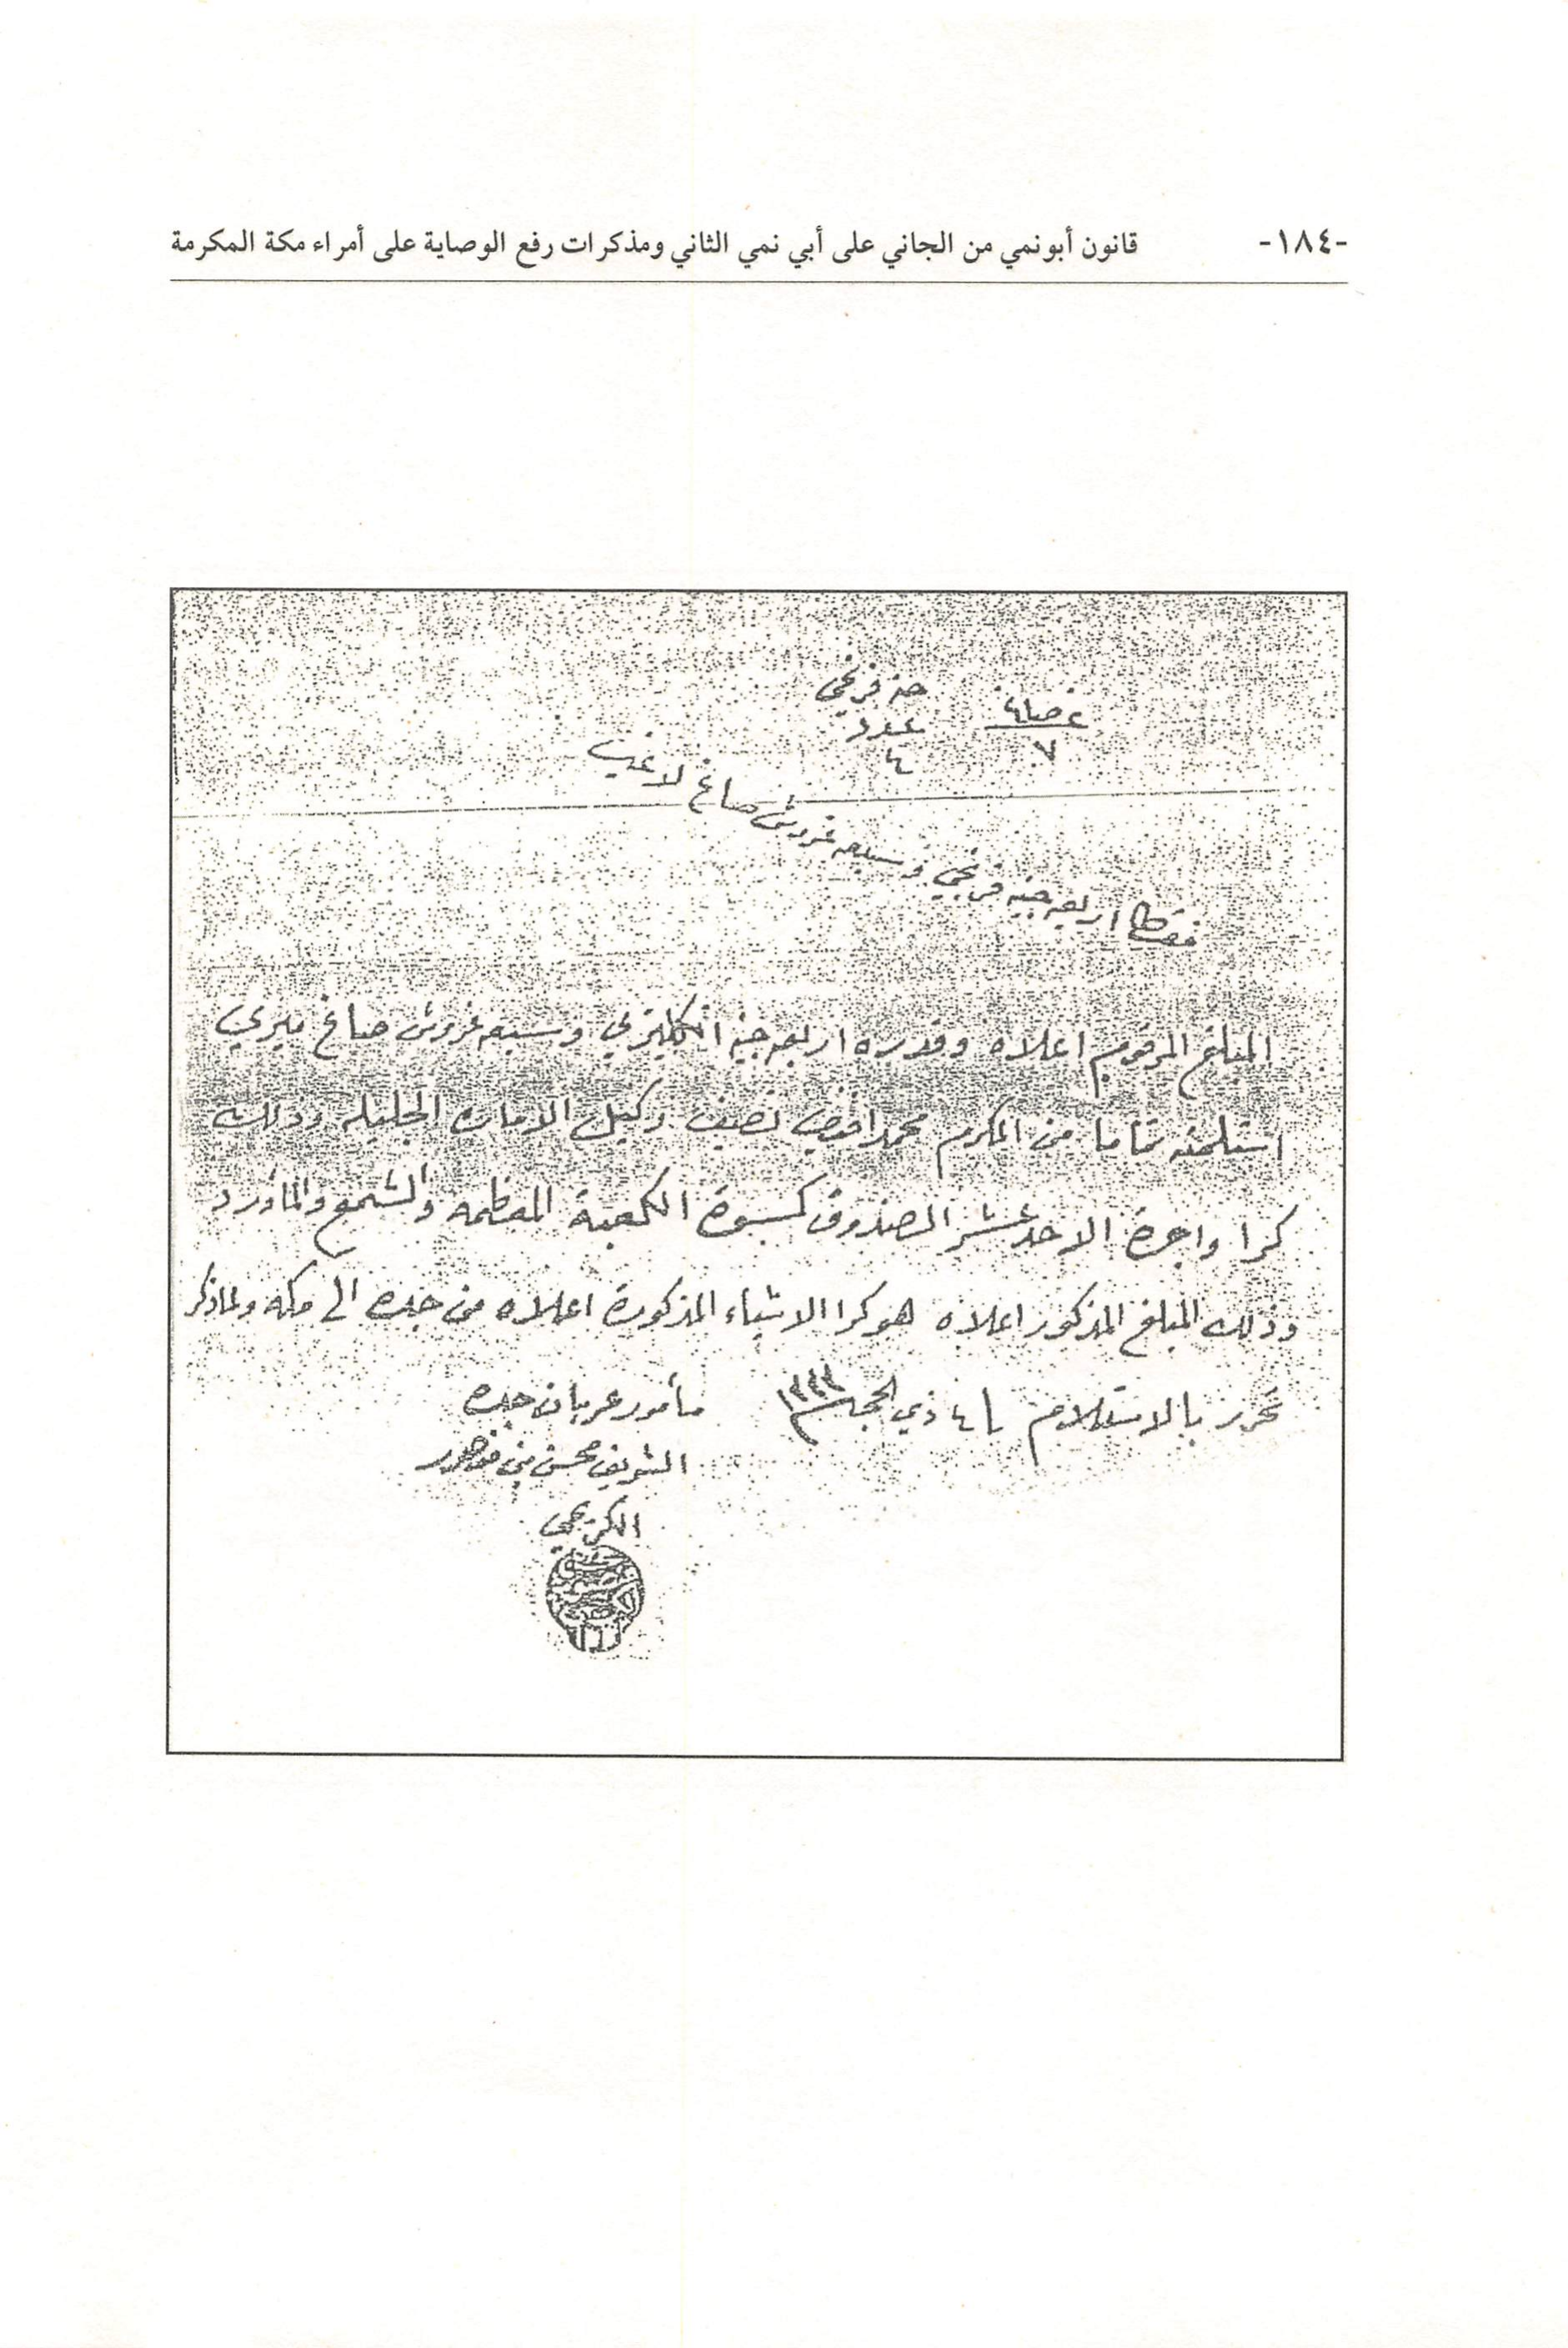 -١٨٤- قانون أبونمي من الجاني على أبي نمي الثاني ومذكرات رفع الوصاية على أمراء مكة المكرمة
جنه فرنجي
عدد
٤
٧
فقط اربعه جنيه فرنجي وسبعه غروش صاغ لا غير
المبلغ المرقوم اعلاه وقدره اربعه جنيه انكليزي وسبعه غروش صاغ ميري
استلمته تماما من المكرم محمد افندي نصيف وكيل الاماره الجليله وذلك
كرا واجرة الاحد عشر الصندوق كسوة الكعبة المعظمه والشمع والماورد
وذلك المبلغ المذكور اعلاه هو كرا الاشياء المذكورة اعلاه من جده الى مكه ولماذكر
تحرر بالاستلام ٤ ذي الحجه ١٣٣٣ مأمور عربان جده
الشريف محسن بن منصور
الكريمي